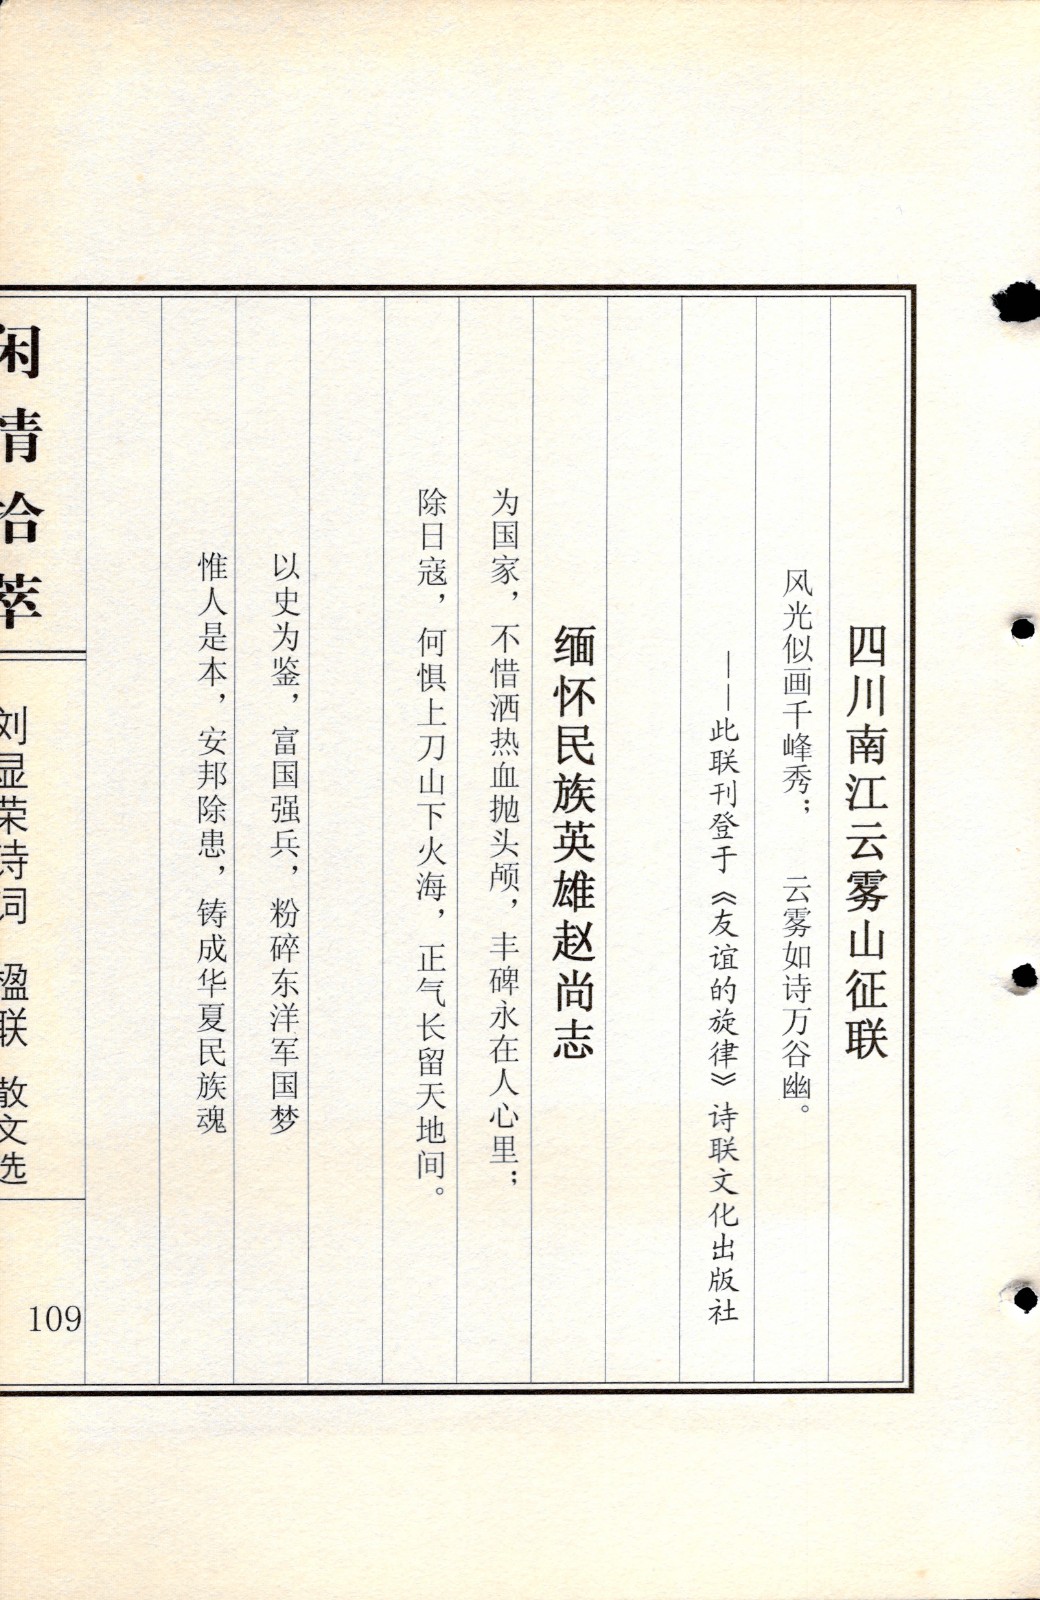 四川南江云雾山征联
风光似画千峰秀； 云雾如诗万谷幽。
——此联刊登于《友谊的旋律》诗联文化出版社
缅怀民族英雄赵尚志
为国家，不惜洒热血抛头颅，丰碑永在人心里；
除日寇，何惧上刀山下火海，正气长留天地间。
以史为鉴，富国强兵，粉碎东洋军国梦
惟人是本，安邦除患，铸成华夏民族魂
闲情拾萃
刘显荣诗词 楹联 散文选
109